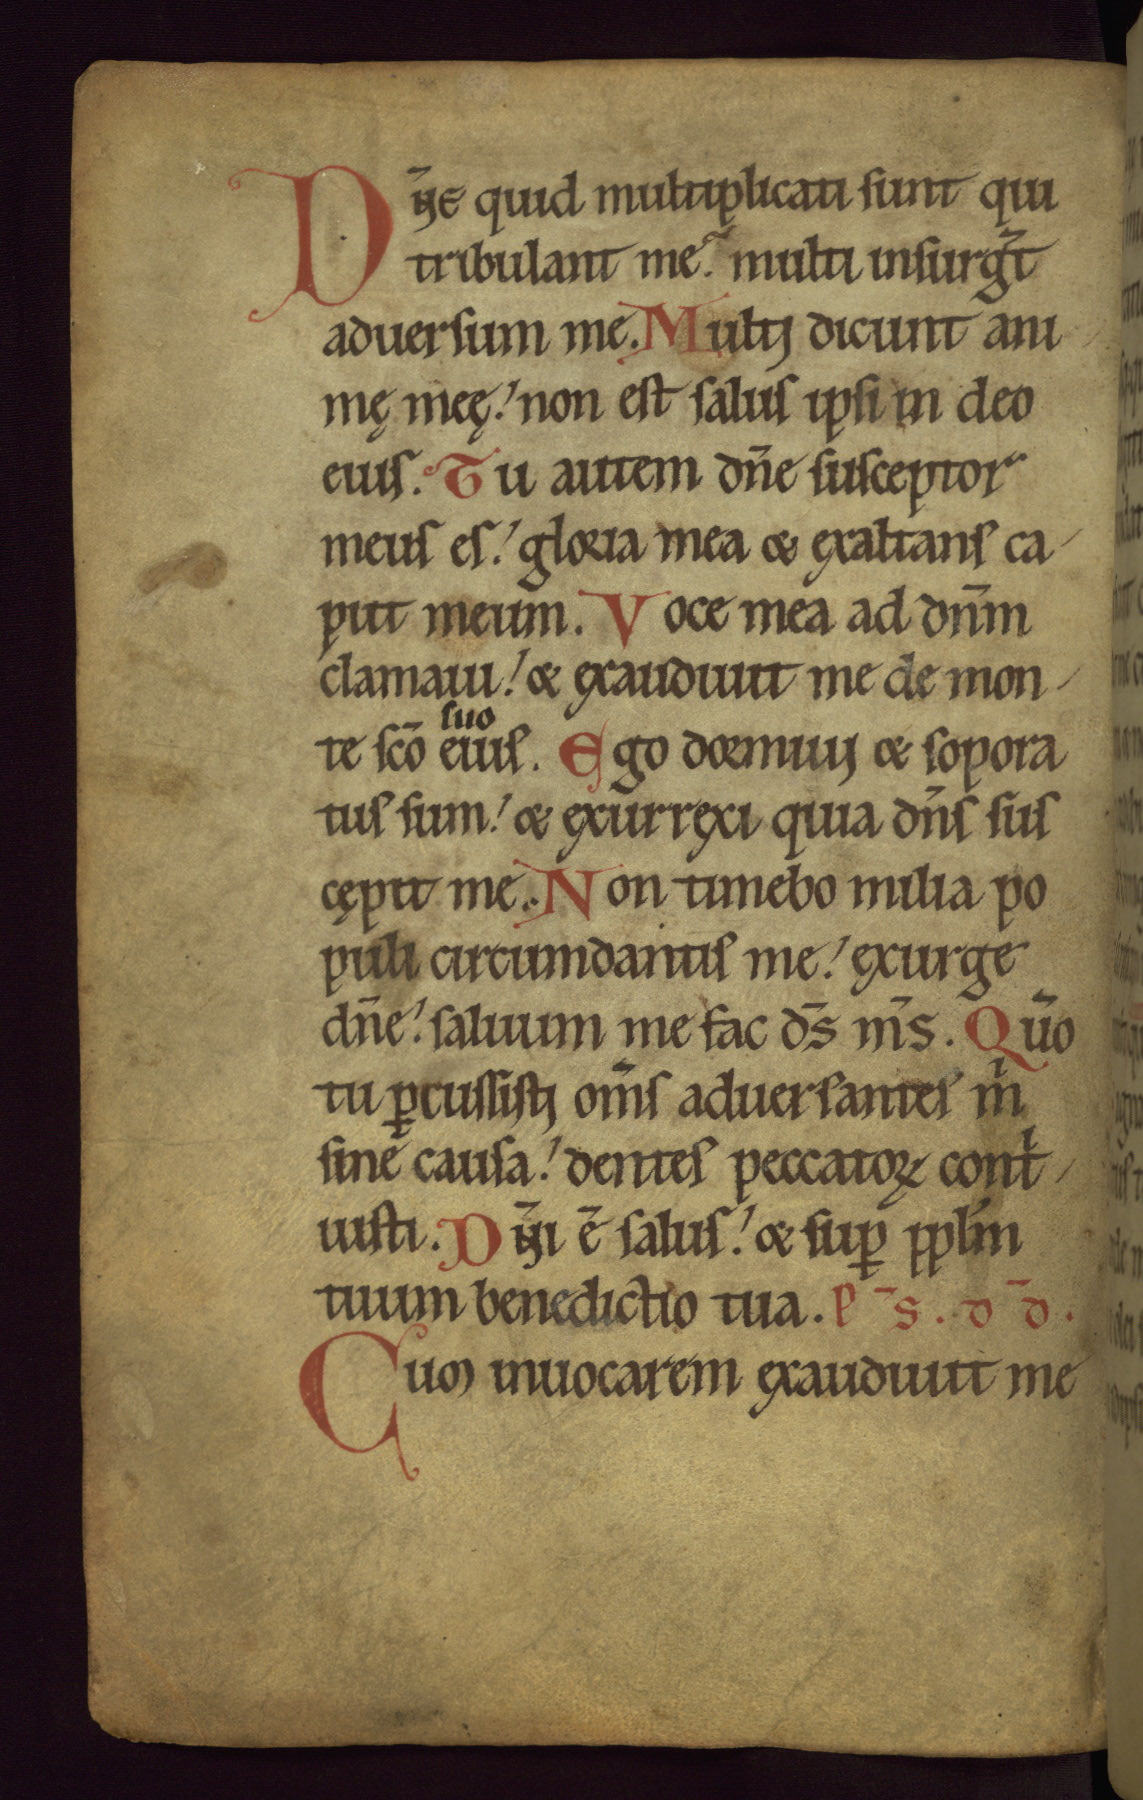 Dn̄e quid multiplicati sunt qui
tribulant me? multi insurgt̄
aduersum me. Multi dicunt ani
mę meę! non est salus ipsi in deo
eius. Tu autem dn̄e susceptor
meus es! gloria mea & exaltans ca-
put meum. Voce mea ad dn̄m
clamaui! & exaudiuit me de mon-
suo
te sc̄o eius. Ego dormiui & sopora
tus sum! & exurrexi quia dn̄s sus
cępit me. Non timebo milia po
puli circumdantis me! exurge
dn̄e! saluum me fac ds̄ ms̄. Qūo
tu ꝑcussisti om̄s aduersantes m̄
sine causa! dentes peccatoꝝ cont̄-
uisti. Dn̄i ē salus! & suꝑ ppl̄m
tuum benedictio tua. P s̄. d d̄.
Cum inuocarem exaudiuit me